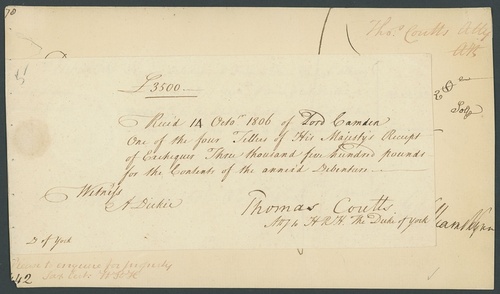 Thos. Coutts Atty
£3500
Recd. 14 Octor. 1806 of Lord Camden
One of the four Tellers of His Majesty's Receipt
of Exchequer Three thousand five hundred pounds
for the Contents of the annex'd Debenture
Witness
A Dickie
Thomas Coutts
Atty to H.R.H. The Duke of York
D of York
42